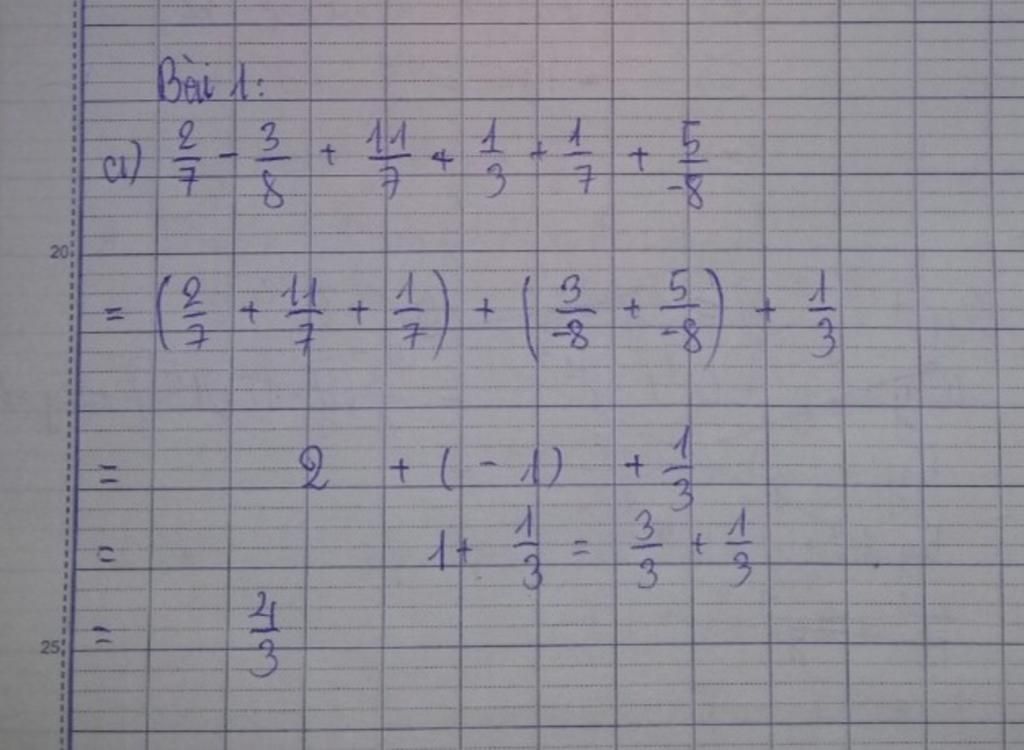 Bài 1:
a) 2/7 - 3/8 + 11/7 + 1/3 + 1/7 + 5/-8
20
= (2/7 + 11/7 + 1/7) + (3/-8 + 5/-8) + 1/3
= 2 + (-1) + 1/3
= 1 + 1/3 = 3/3 + 1/3
25
= 4/3